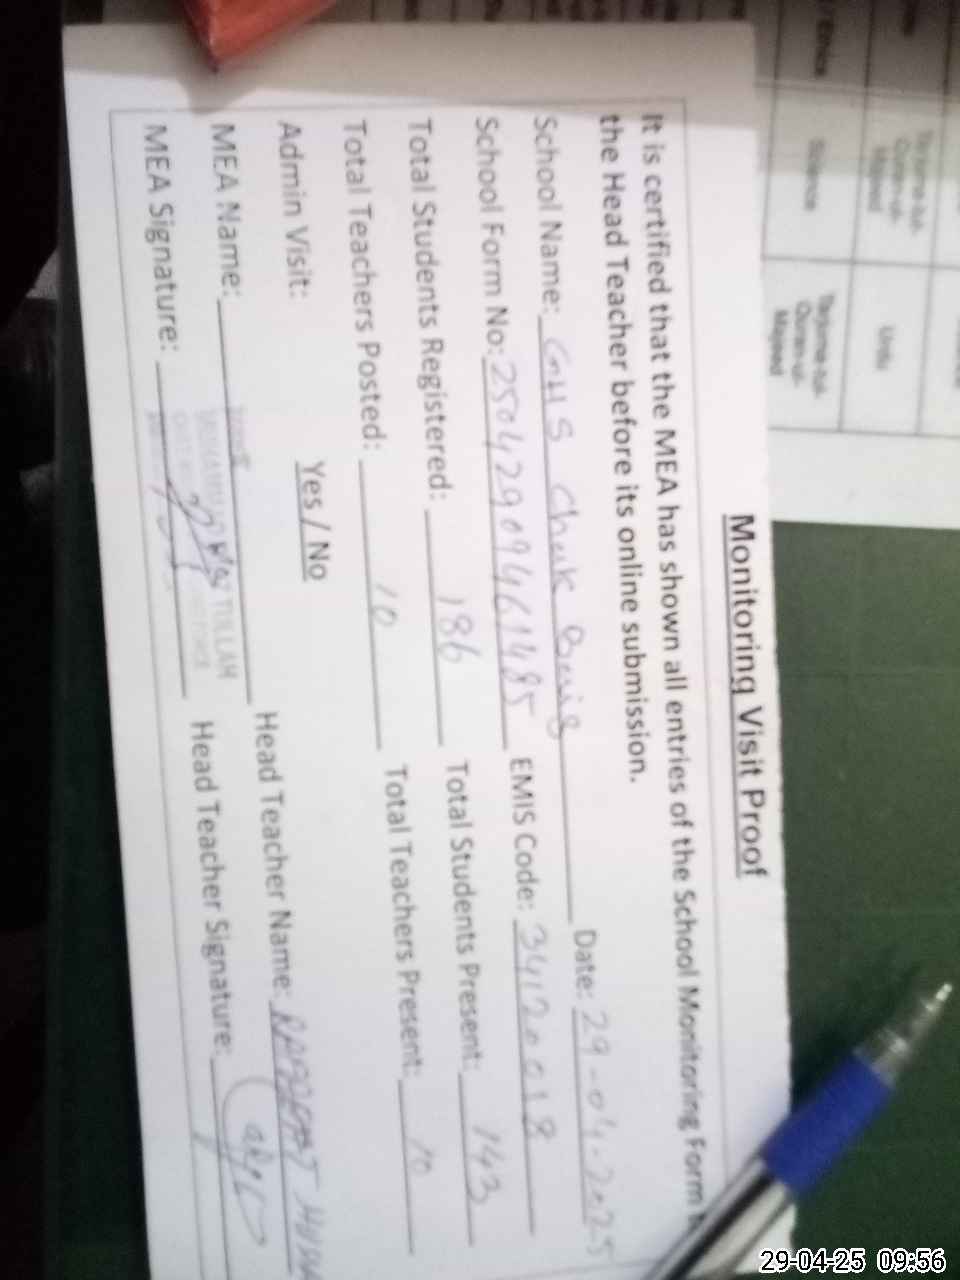 Monitoring Visit Proof
It is certified that the MEA has shown all entries of the School Monitoring Form
the Head Teacher before its online submission.
School Name: GHS Chak Date: 29-04-2025
School Form No: 25042909461485 EMIS Code: 34120018
Total Students Registered: 186 Total Students Present: 143
Total Teachers Posted: 10 Total Teachers Present: 10
Admin Visit: Yes / No
MEA Name: Head Teacher Name:
MEA Signature: Head Teacher Signature:
/ Ethics Science Tarjuma-tul-Quran-ul-Majeed
Tarjuma-tul-Quran-ul-Majeed Urdu
29-04-25 09:56